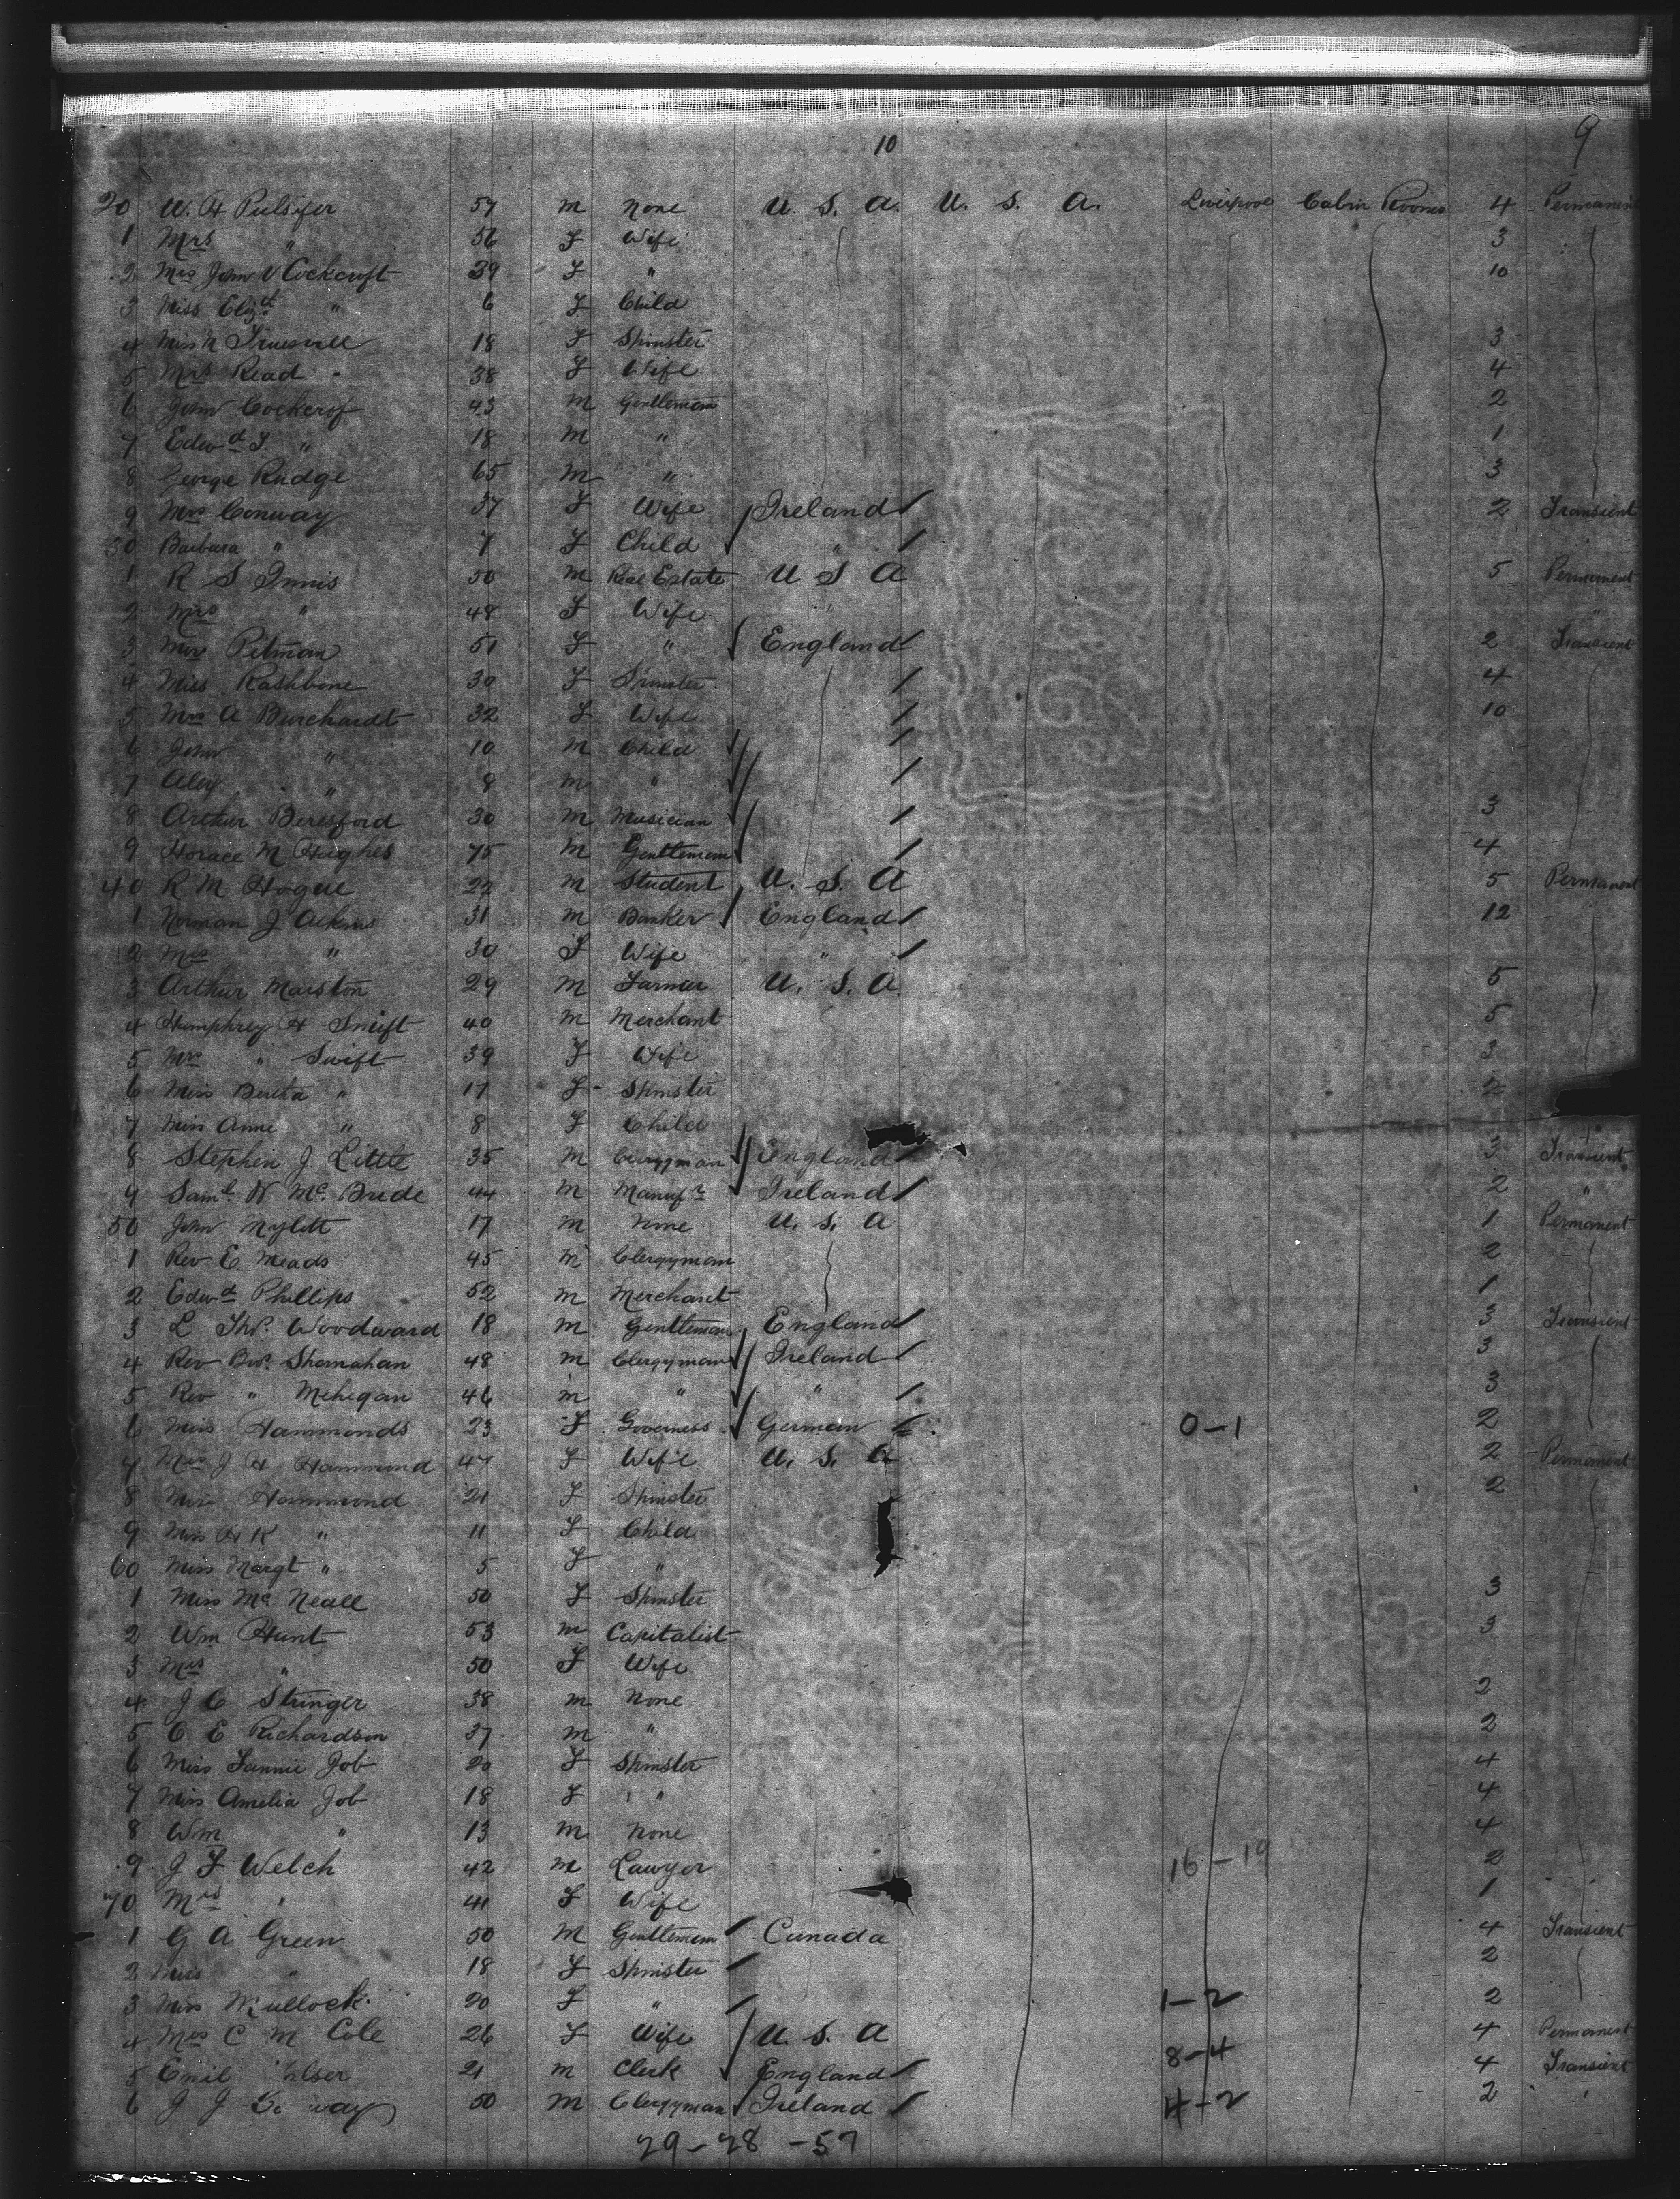 10 9
20 W. H Pulsifer 57 m None U. S. A. U. S. A. Liverpool Cabin Rooms 4 Permanent
1 Mrs " 56 F Wife 3
2 Mrs John V Cockcroft 39 F " 10
3 Miss Elizth " 6 F Child
4 Miss N 18 F Spinster 3
5 Mrs Read 38 F Wife 4
6 John Cockcrof 43 m Gentleman 2
7 Edwd T. " 18 m " 1
8 George Rudge 65 m " 3
9 Mrs Conway 37 F Wife Ireland 2 Transient
30 Barbara " 7 F Child "
1 R S Innis 50 m Real Estate U S A 5 Permanent
2 Mrs " 48 F Wife "
3 Mrs Pitman 51 F " England 2 Transient
4 Miss Rashbone 30 F Spinster 4
5 Mrs A Burchardt 32 F Wife 10
6 John " 10 m Child
7 Alex " 8 m "
8 Arthur Beresford 30 m Musician 3
9 Horace M Hughes 75 m Gentleman 4
40 R M Hogue 22 m Student U. S. A 5 Permanent
1 Norman J 31 m Banker England 12
2 Mrs " 30 F Wife "
3 Arthur Marston 29 m Farmer U. S. A. 5
4 Humphrey H Swift 40 m Merchant 5
5 Mrs " Swift 39 F Wife 3
6 Miss Berta " 17 F Spinster 2
7 Miss Anne " 8 F Child
8 Stephen J Little 35 m Clergyman England 3 Transient
9 Saml. W Mc. Bride 44 m Manufr Ireland 2 "
50 John Mylett 17 m None U. S. A 1 Permanent
1 Rev E Meads 45 m Clergyman 2
2 Edwd Phillips 52 m Merchant 1
3 L Woodward 18 m Gentleman England 3 Transient
4 Rev Shanahan 48 m Clergyman Ireland 3
5 Rev " Mehigan 46 m " " 3
6 Miss Hammonds 23 F Governess German 0-1 2
7 Mrs J H Hammond 47 F Wife U. S. A 2 Permanent
8 Miss Hammond 21 F Spinster 2
9 Miss H K " 11 F Child
60 Miss Margt " 5 F "
1 Miss Mc Neall 50 F Spinster 3
2 Wm Hunt 53 m Capitalist 3
3 Mrs " 50 F Wife
4 J C Stringer 38 m None 2
5 C E Richardson 37 m " 2
6 Miss Fannie Job 20 F Spinster 4
7 Miss Amelia Job 18 F " 4
8 Wm " 13 m None 4
9 J F Welch 42 m Lawyer 16-19 2
70 Mrs " 41 F Wife 1
1 G A Green 50 m Gentleman Canada 4 Transient
2 Miss " 18 F Spinster 2
3 Miss Mullock 20 F " 1-2 2
4 Mrs C M Cole 26 F Wife U. S. A 4 Permanent
5 Emil 21 m Clerk England 8-4 4 Transient
6 J J 50 m Clergyman Ireland 4-2 2 "
29-28-57